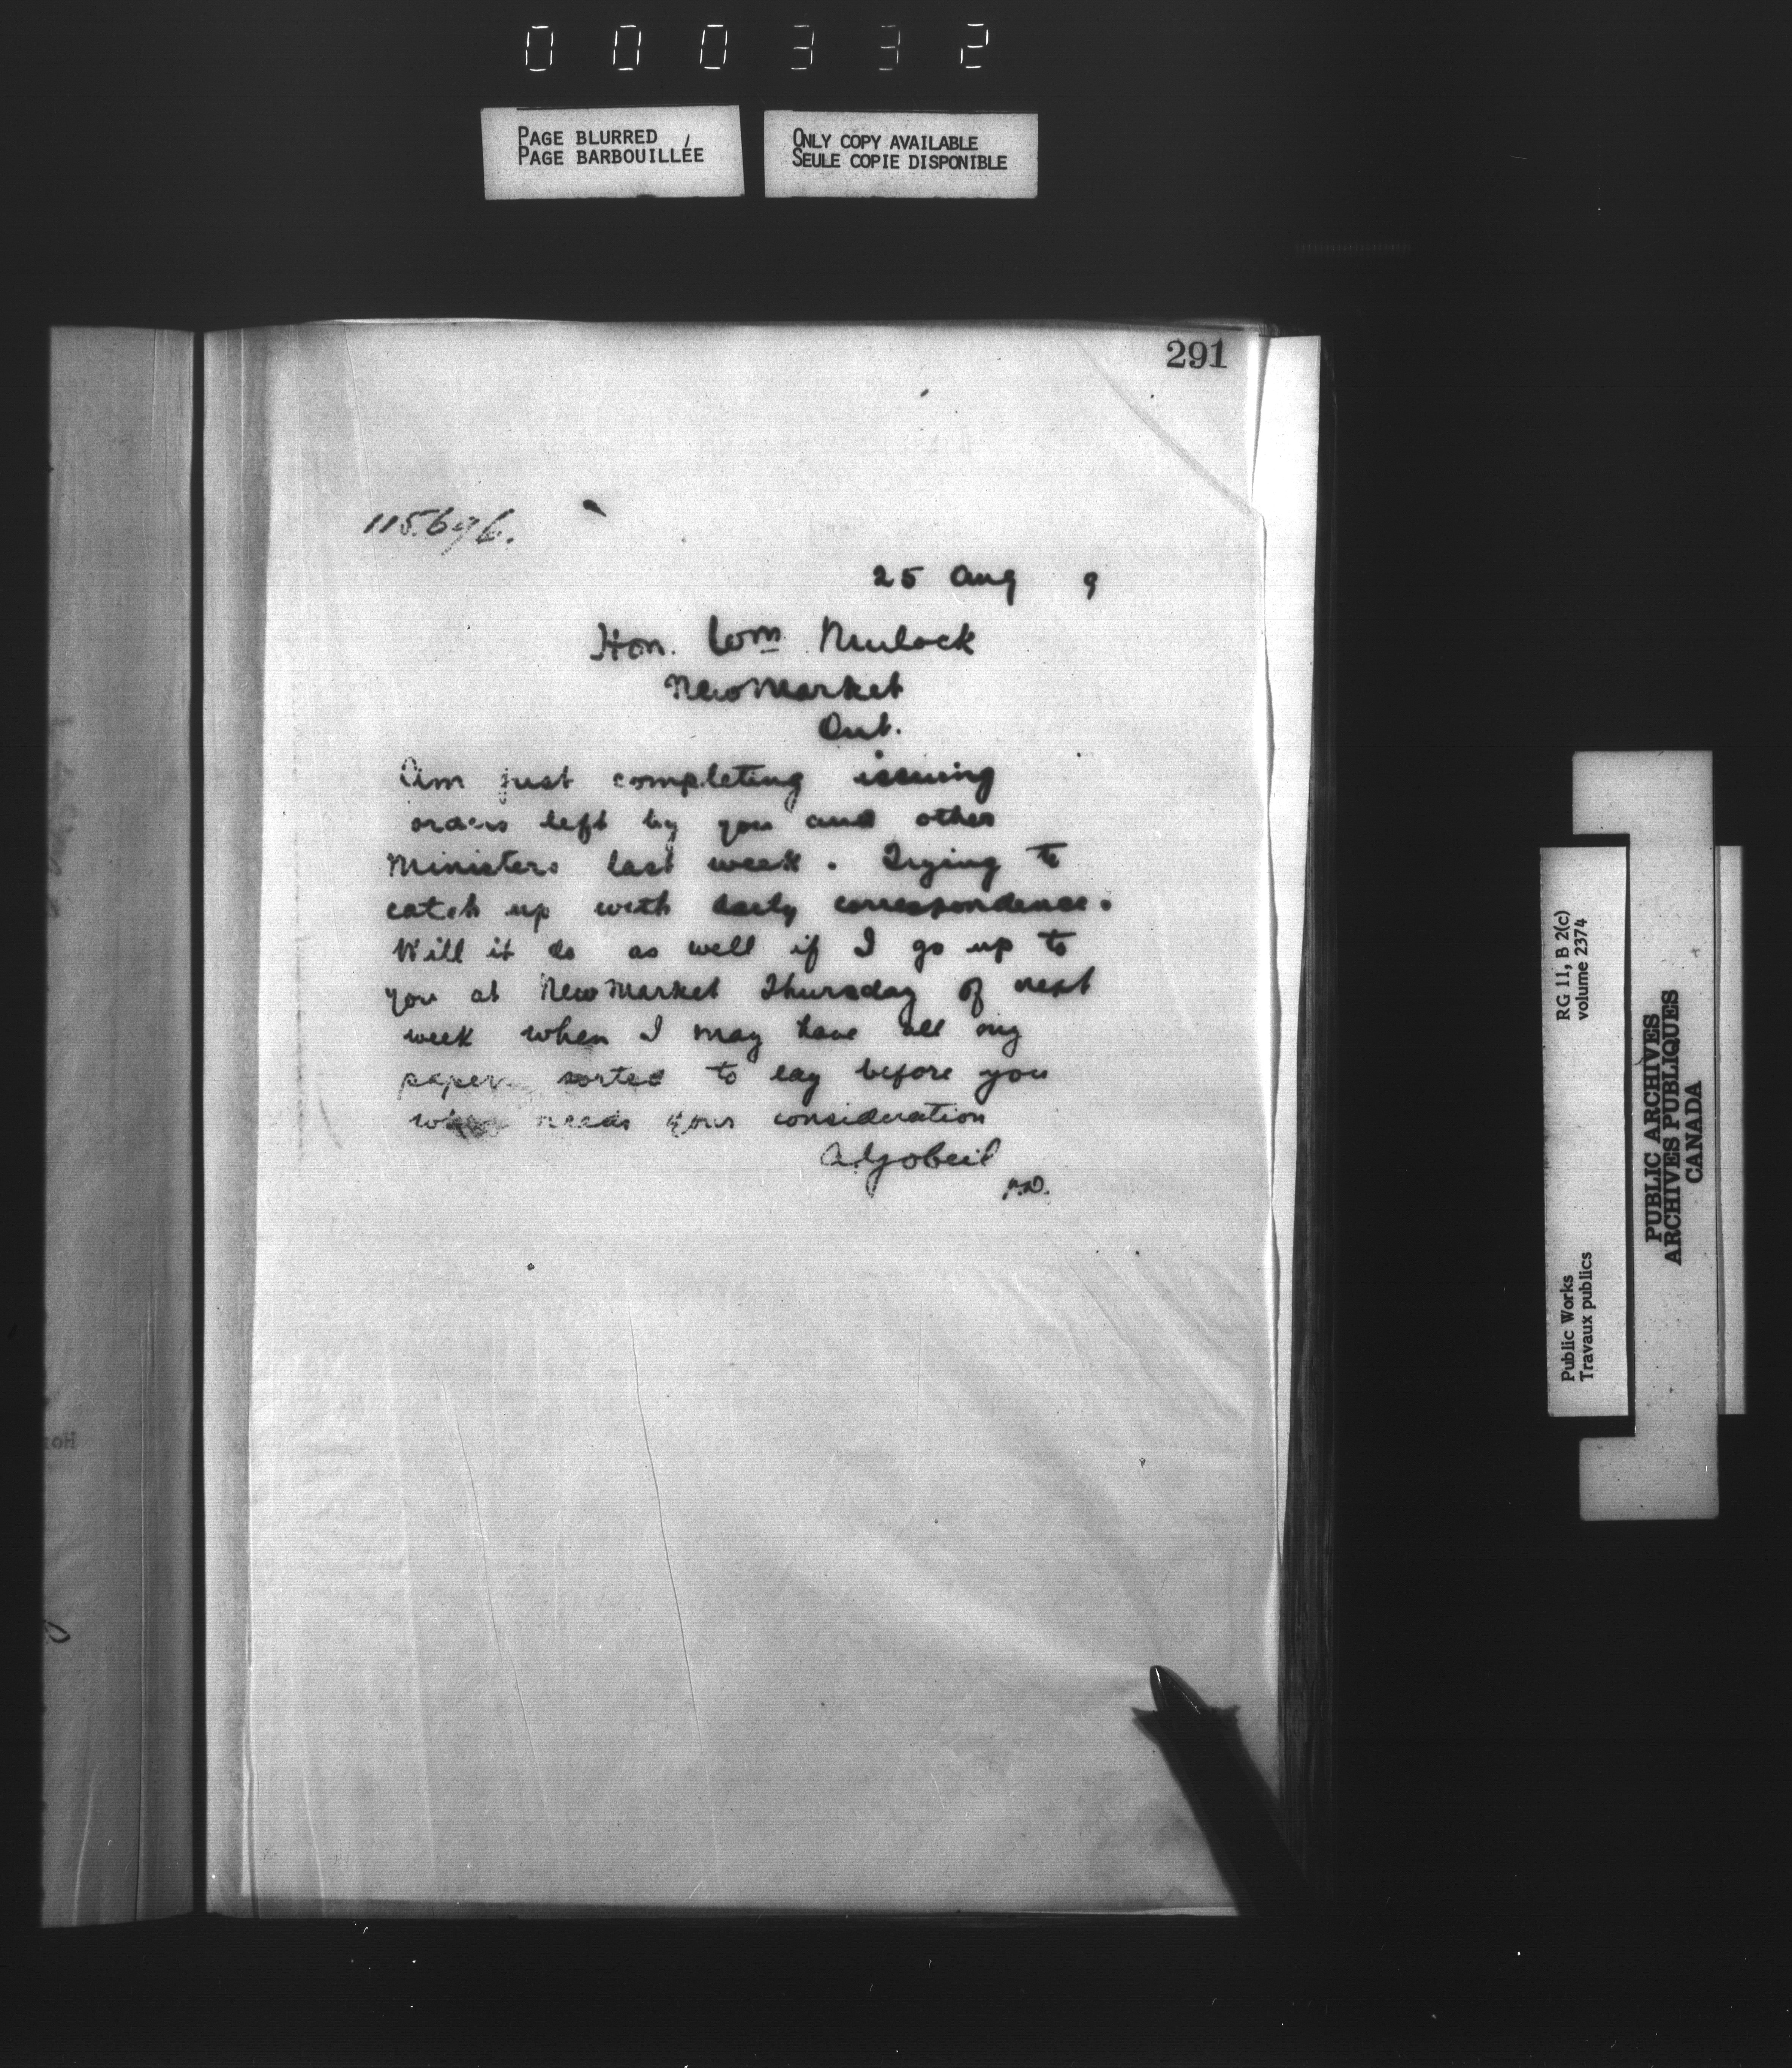 000332
PAGE BLURRED
PAGE BARBOUILLÉE
ONLY COPY AVAILABLE
SEULE COPIE DISPONIBLE
291
115.696.
25 Aug 9
Hon. Wm Mulock
NewMarket
Ont.
Am just completing issuing
orders left by you and other
Ministers last week. Trying to
catch up with daily correspondence.
Will it do as well if I go up to
you at NewMarket Thursday of next
week when I may have all my
papers sorted to lay before you
needs your consideration
A Gobeil
RG 11, B 2(c)
volume 2374
Public Works
Travaux publics
PUBLIC ARCHIVES
ARCHIVES PUBLIQUES
CANADA